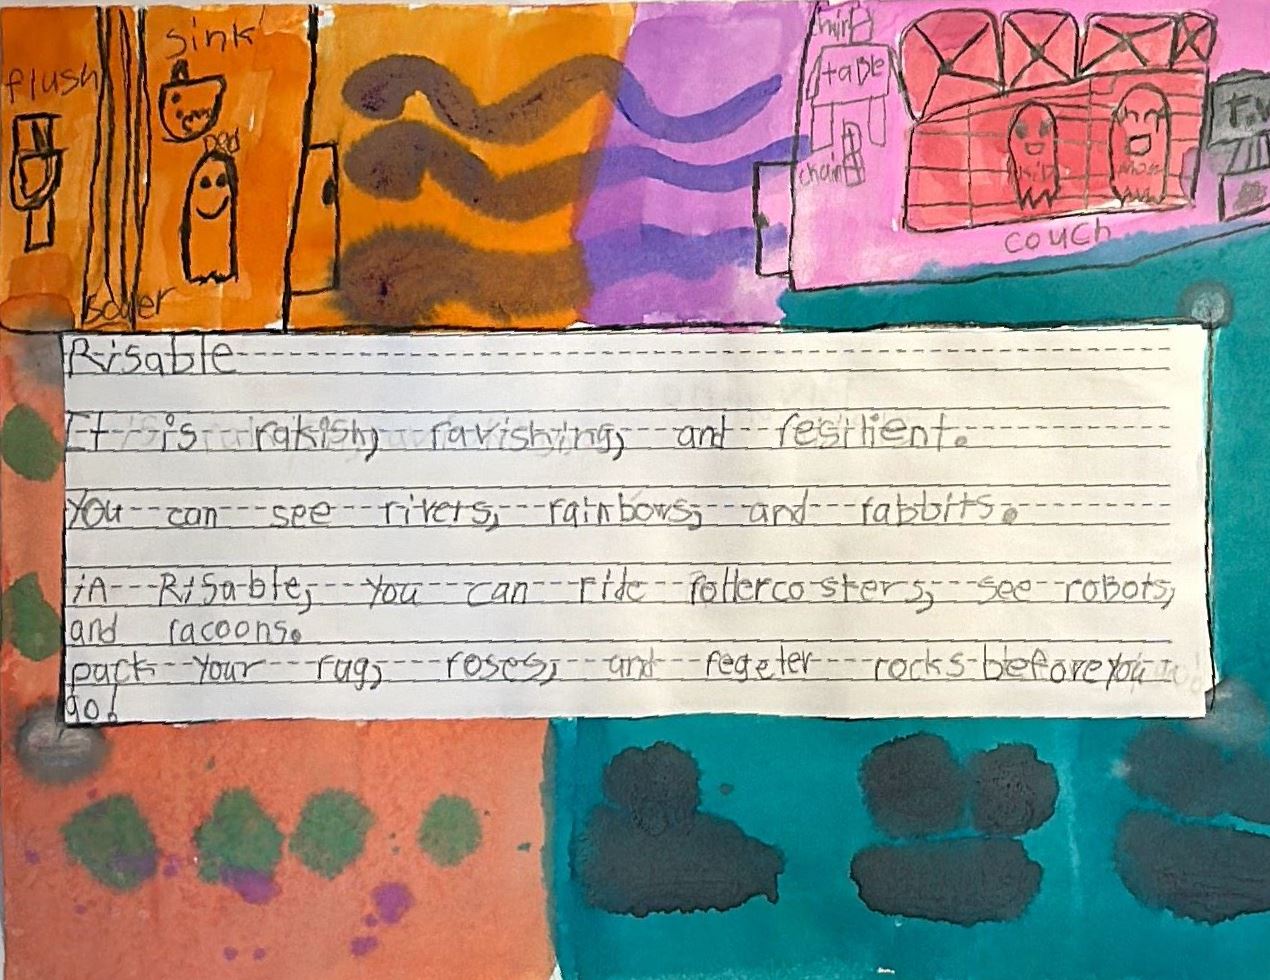 sink
flush
DeD
scaler
chair
table
chair
couch
T.V
Risable
It is rakish, ravishing, and resilient.
You can see rivers, rainbows, and rabbits.
in Risable, you can ride rollercosters, see robots,
and racoons.
pack your rug, roses, and regeler rocks before you
go!